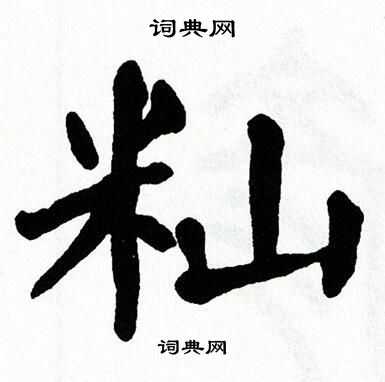 词典网
籼
词典网